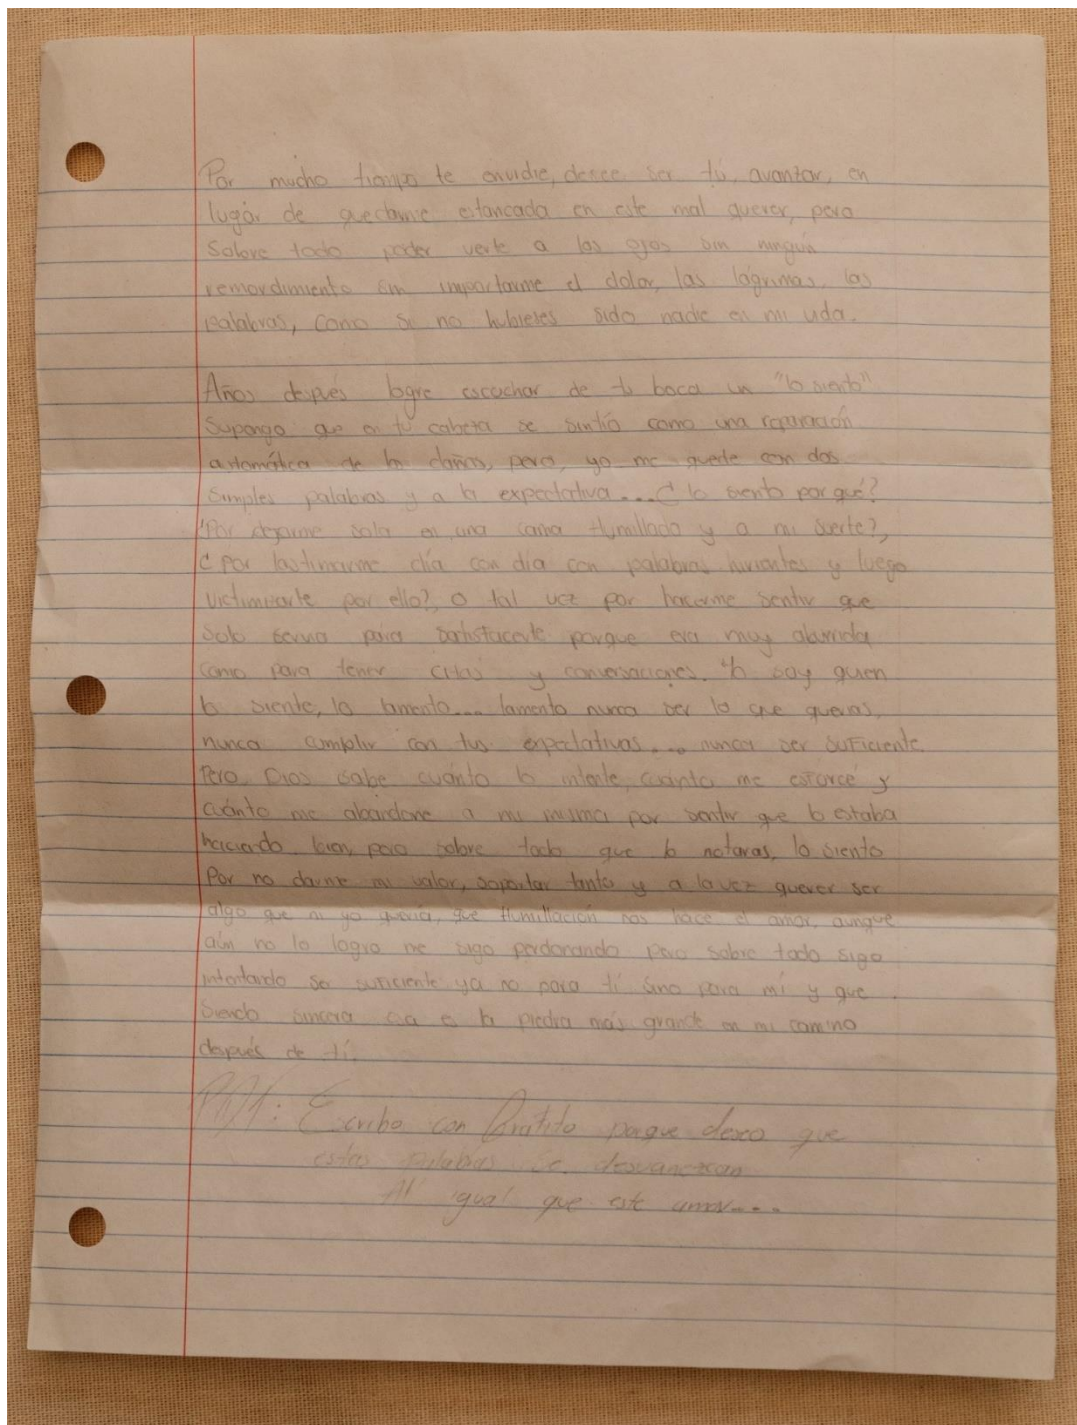 Por mucho tiempo te envidie, desee ser tú, avanzar, en
lugar de quedarme estancada en este mal querer, pero
Sobre todo poder verte a los ojos sin ningún
remordimiento sin importarme el dolor, las lágrimas, las
palabras, como si no hubieses sido nadie en mi vida.
Años después logre escuchar de tu boca un "lo siento"
Supongo que en tu cabeza se sintió como una reparación
automática de los daños, pero, yo me quede con dos
simples palabras y a la expectativa... ¿ lo siento por qué?
¿Por dejarme sola en una cama Humillada y a mi suerte?,
¿ Por lastimarme día con día con palabras hirientes y luego
victimizarte por ello?, o tal vez por hacerme sentir que
solo servia para satisfacerte porque era muy aburrida
como para tener citas y conversaciones. Yo soy quien
lo siente, lo lamento... lamento nunca ser lo que querias,
nunca cumplir con tus expectativas... nunca ser suficiente.
Pero Dios sabe cuánto lo intente, cuánto me esforcé y
cuánto me abandone a mi misma por sentir que lo estaba
haciendo bien, pero sobre todo que lo notaras, lo siento
Por no darme mi valor, soportar tanto y a la vez querer ser
algo que ni yo quería, que Humillación nos hace el amor, aunque
aún no lo logro me sigo perdonando pero sobre todo sigo
intentando ser suficiente ya no para tí sino para mí y que
Siendo sincera esa es la piedra más grande en mi camino
después de tí.
Escribo con Grafito porque deseo que
estas palabras se desvanezcan
Al igual que este amor....